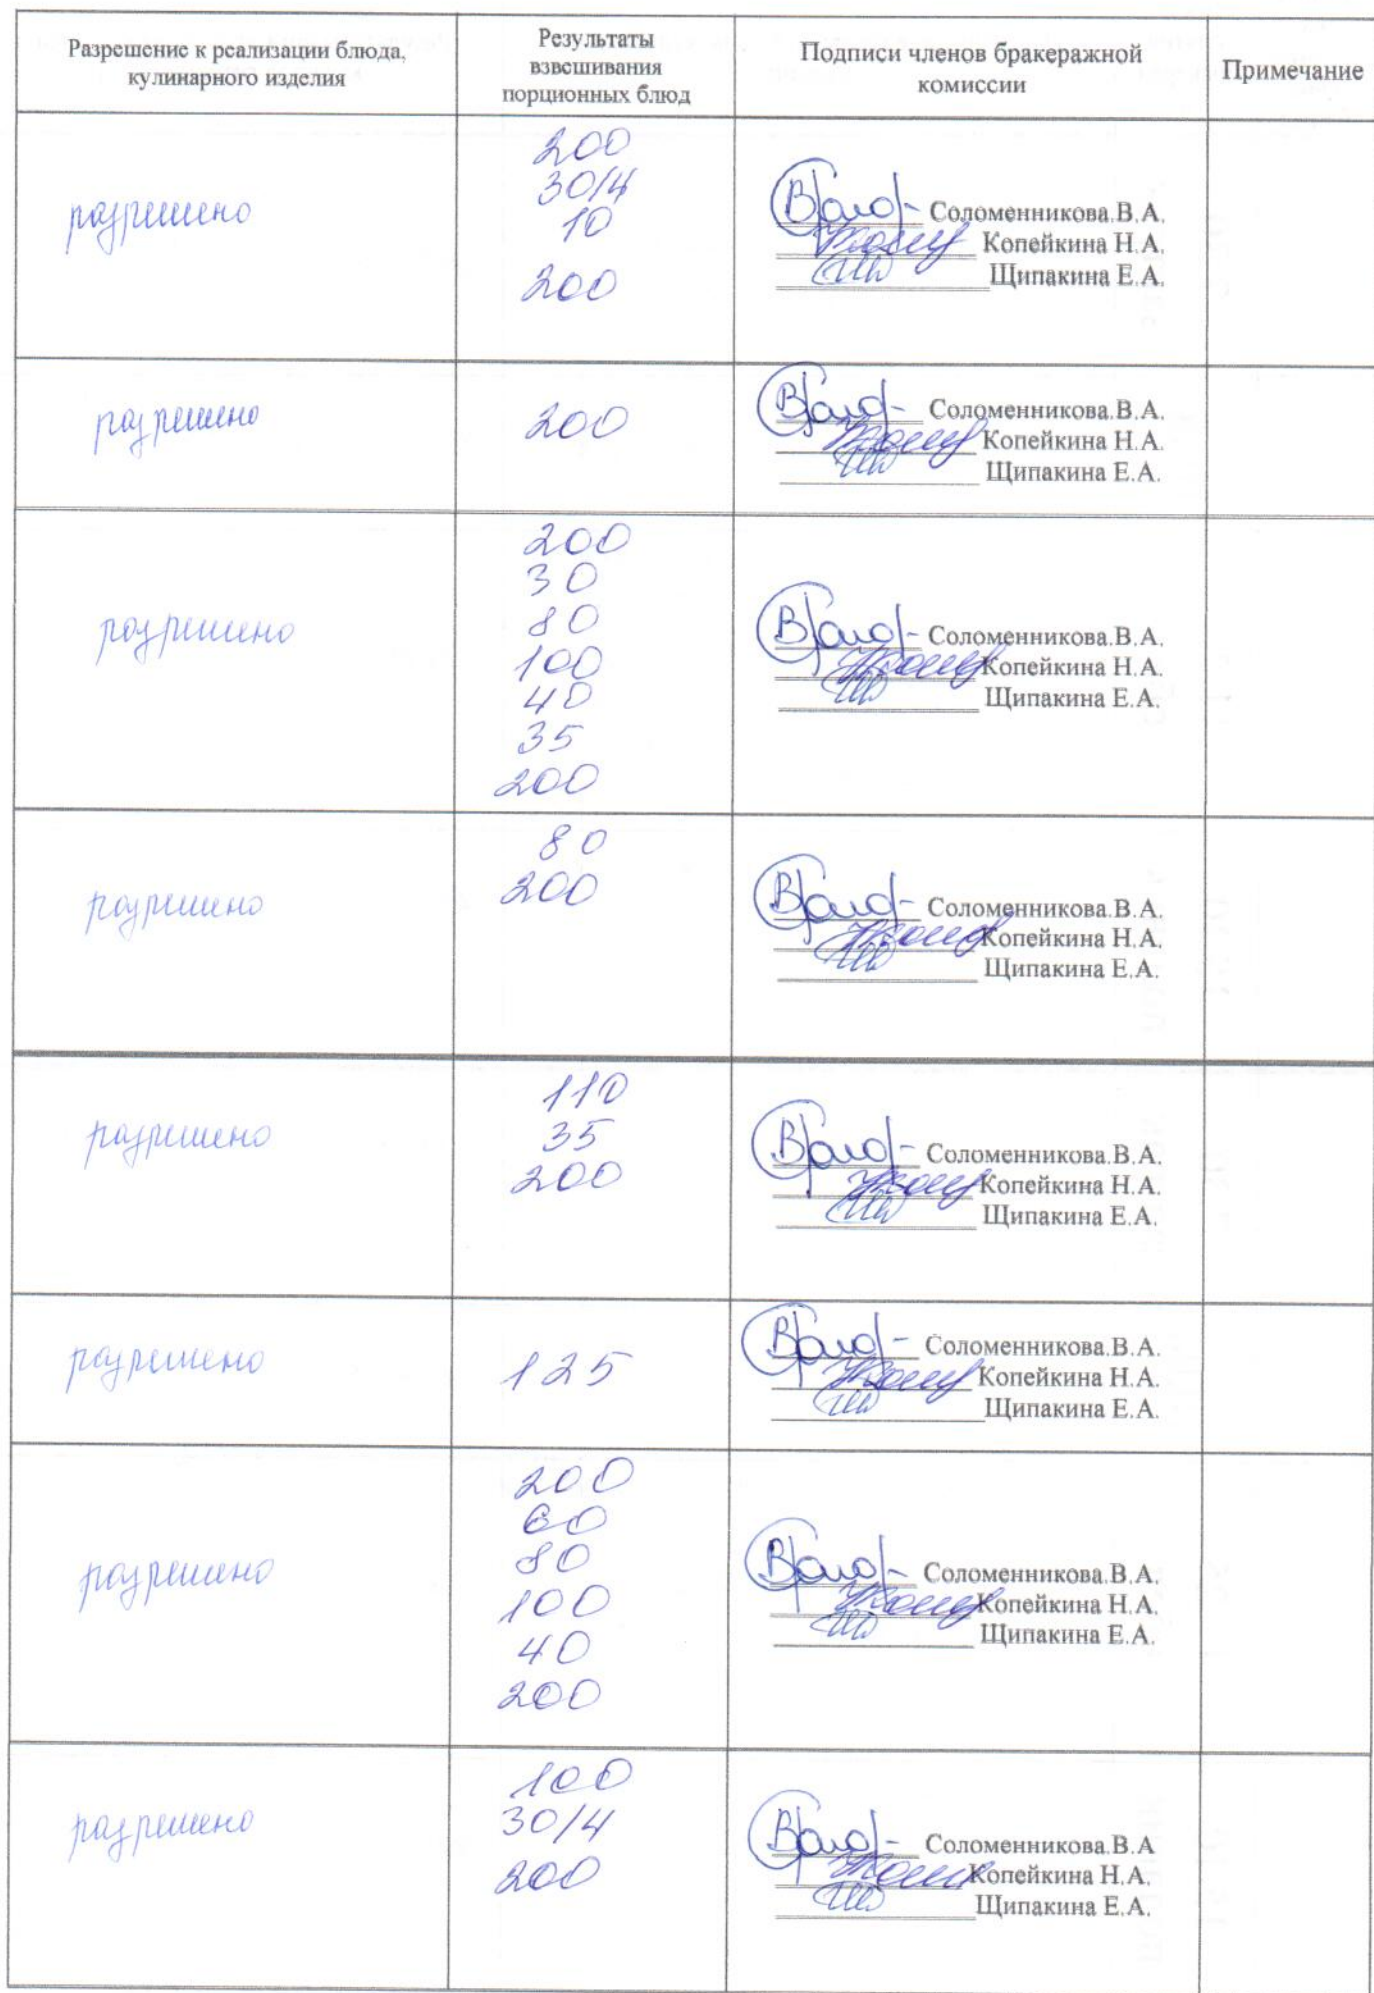 Разрешение к реализации блюда,
кулинарного изделия
Результаты
взвешивания
порционных блюд
Подписи членов бракеражной
комиссии
Примечание
разрешено
200
30/4
10
200
Соломенникова.В.А.
Копейкина Н.А.
Щипакина Е.А.
разрешено
200
Соломенникова.В.А.
Копейкина Н.А.
Щипакина Е.А.
разрешено
200
30
80
100
40
35
200
Соломенникова.В.А.
Копейкина Н.А.
Щипакина Е.А.
разрешено
80
200
Соломенникова.В.А.
Копейкина Н.А.
Щипакина Е.А.
разрешено
110
35
200
Соломенникова.В.А.
Копейкина Н.А.
Щипакина Е.А.
разрешено
125
Соломенникова.В.А.
Копейкина Н.А.
Щипакина Е.А.
разрешено
200
60
80
100
40
200
Соломенникова.В.А.
Копейкина Н.А.
Щипакина Е.А.
разрешено
100
30/4
200
Соломенникова.В.А
Копейкина Н.А.
Щипакина Е.А.